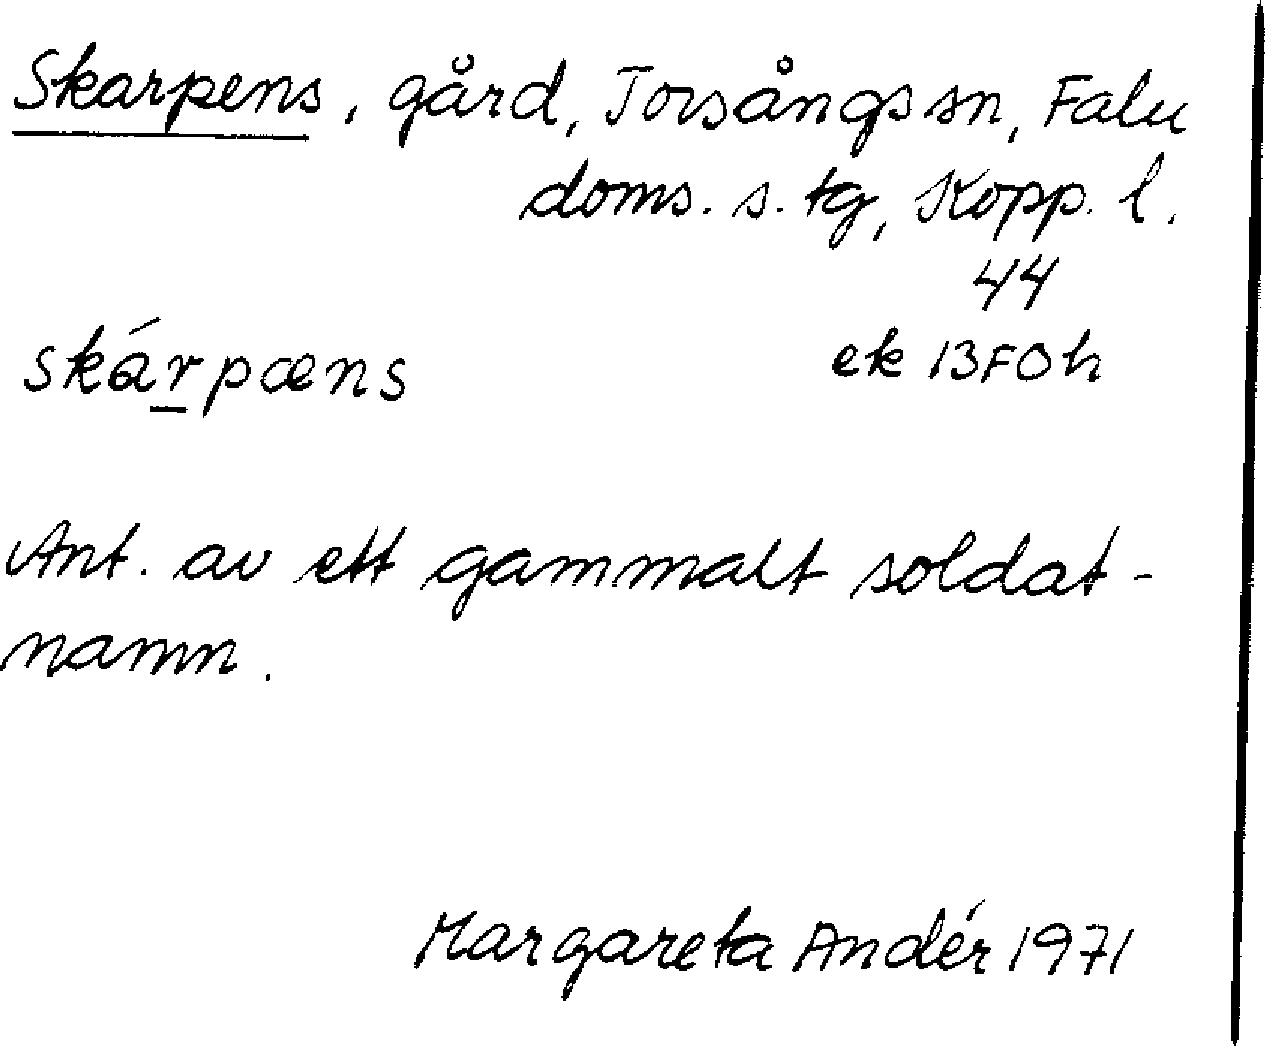 Skarpens, gård, Torsångs sn, Falu
doms. s. tg, Kopp. l.
44
skárpæns ek 13F0h
Ant. av ett gammalt soldat-
namn.
Margareta Andér 1971